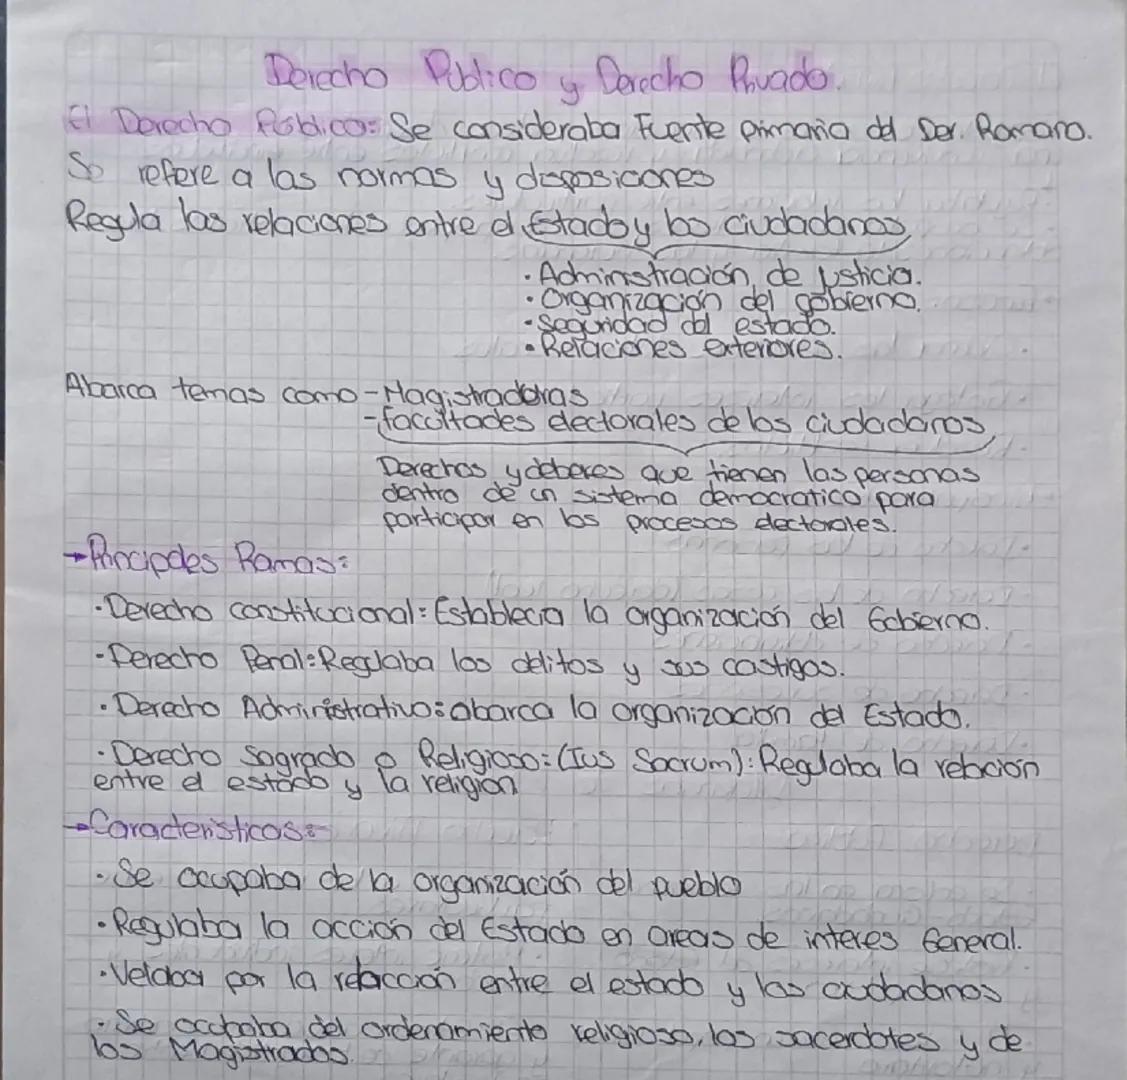 Derecho Público y Derecho Privado.
El Derecho Público: Se consideraba Fuente primaria del Der. Romano.
Se refiere a las normas y disposiciones
Regula las relaciones entre el Estado y los ciudadanos
· Administración de justicia.
· Organización del gobierno.
· Seguridad del estado.
· Relaciones exteriores.
Abarca temas como - Magistraduras
- facultades electorales de los ciudadanos
Derechos y deberes que tienen las personas
dentro de un sistema democratico para
participar en los procesos electorales.
→ Principales Ramas:
· Derecho constitucional: Establecía la organización del Gobierno.
- Derecho Penal: Regulaba los delitos y sus castigos.
· Derecho Administrativo: abarca la organización del Estado.
· Derecho Sagrado o Religioso: (Ius Sacrum): Regulaba la relación
entre el estado y la religión
→ Características:
· Se ocupaba de la organización del pueblo
· Regulaba la acción del Estado en areas de interes General.
· Velaba por la relacción entre el estado y los ciudadanos
· Se ocupaba del ordenamiento religioso, los sacerdotes y de
los Magistrados.